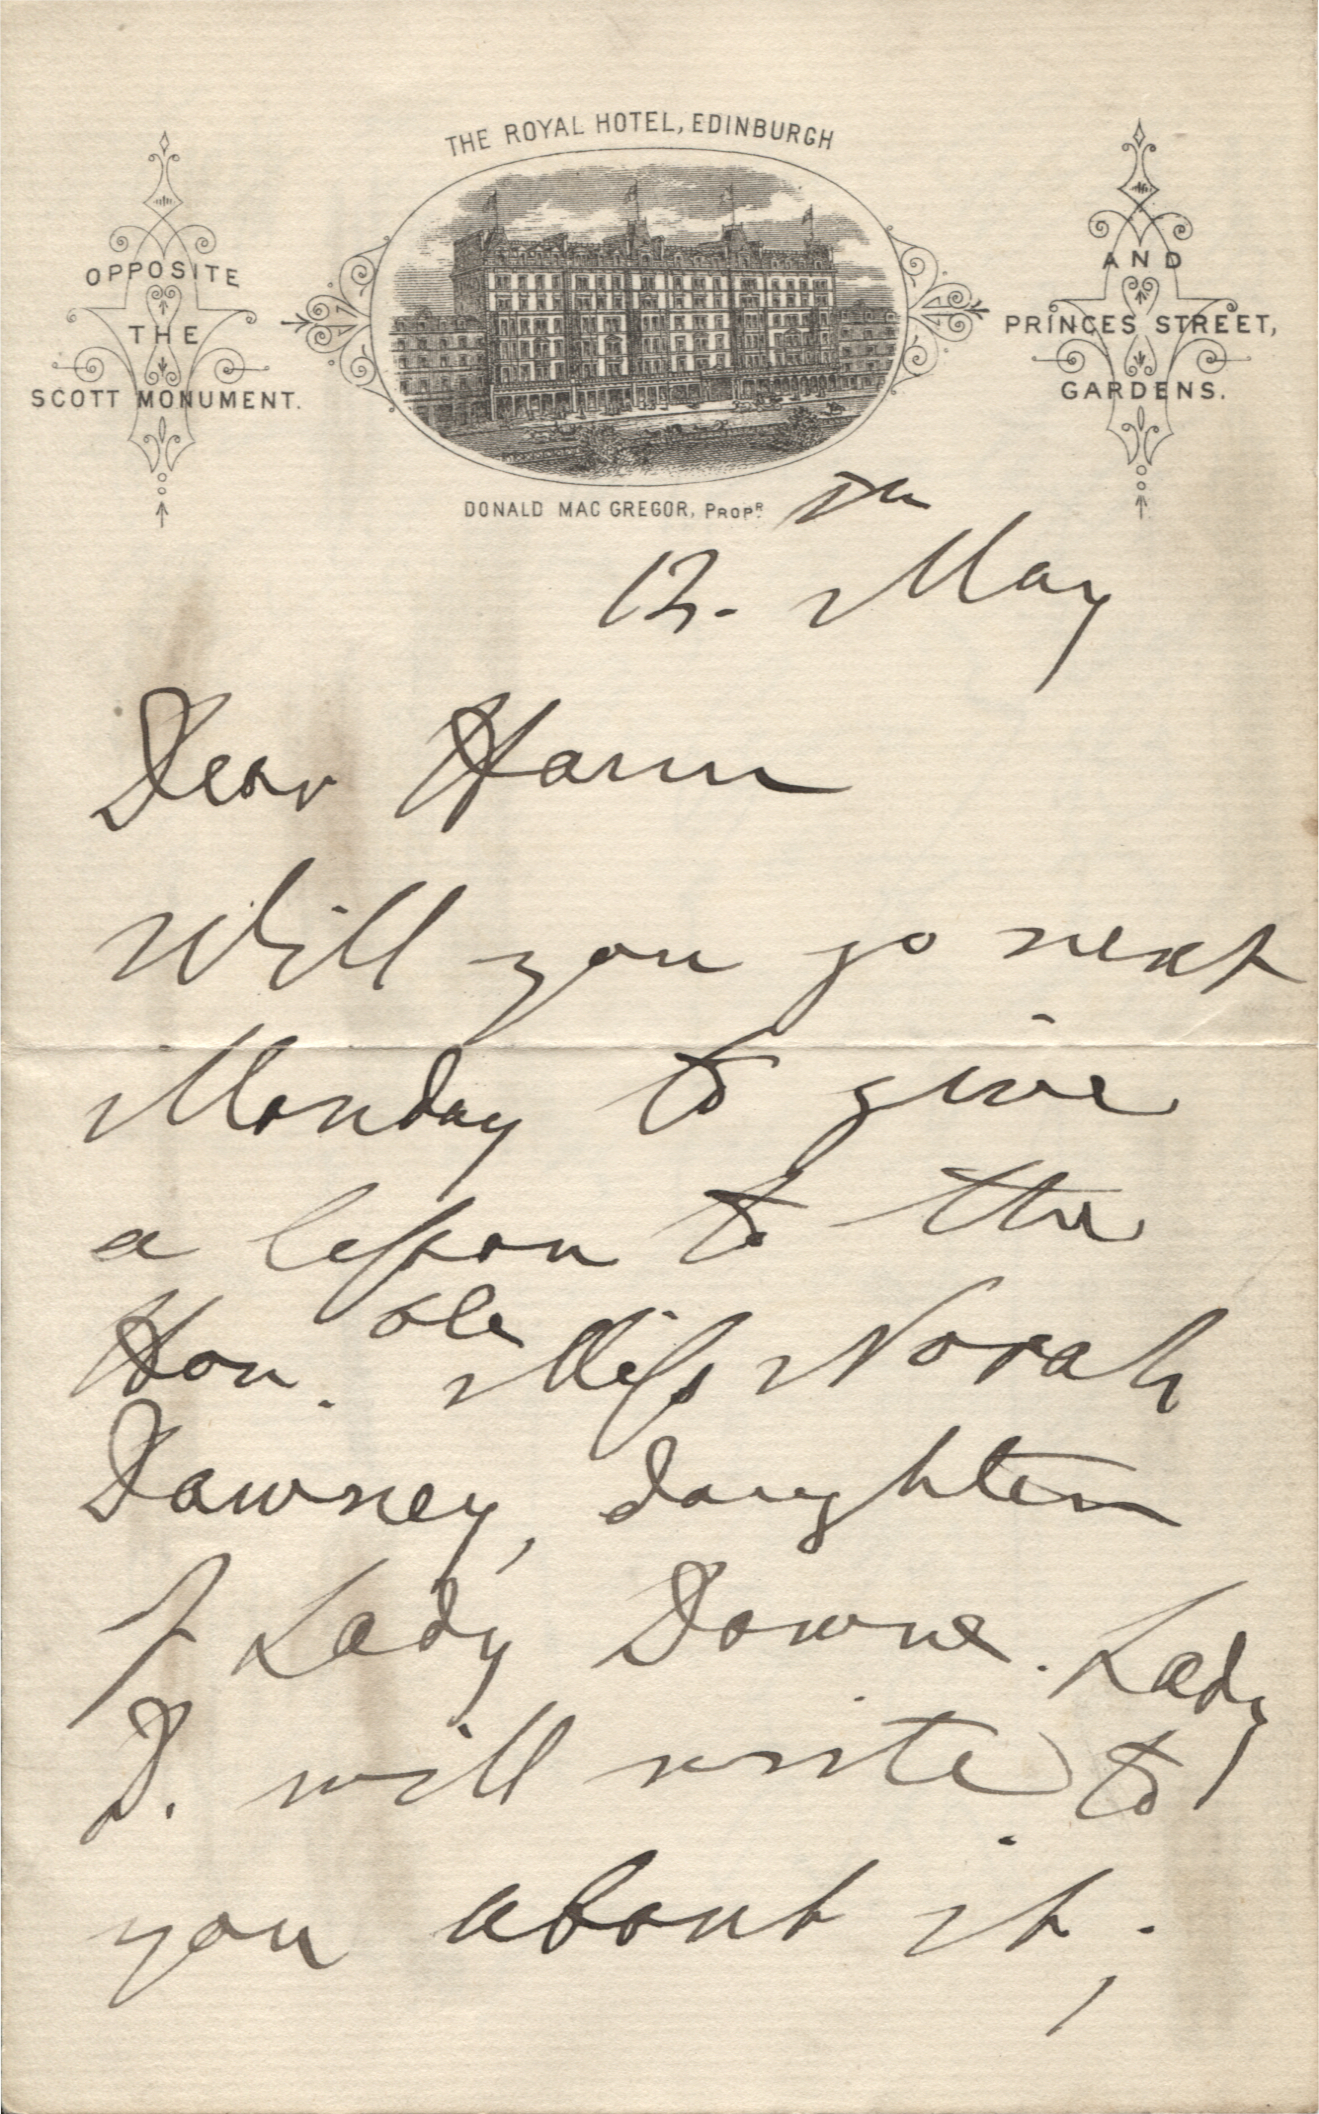 THE ROYAL HOTEL, EDINBURGH
OPPOSITE
THE
SCOTT MONUMENT.
AND
PRINCES STREET,
GARDENS.
DONALD MAC GREGOR, PROPR.
12. th May
Dear Hann
Will you go next
Monday to give
a lesson to the
Hon.ble Miss Norah
Dawney, daughter
of Lady Downe. Lady
D. will write to
you about it;